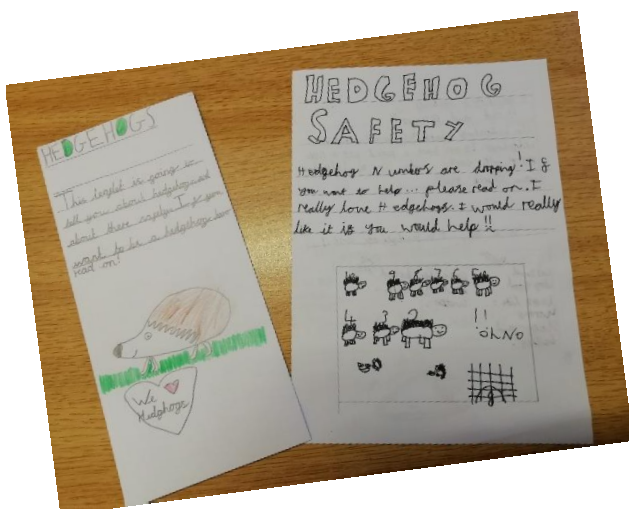 HEDGEHOGS
This leaflet is going to
tell you about hedgehogs and
about there safty. If you
want to be a hedgehoge hero
read on!
We
Hedghogs
HEDGEHOG
SAFETY
Hedgehog Numbers are dropping! If
you want to help... please read on. I
really love Hedgehogs. I would really
like it if you would help!!
!!
oh No